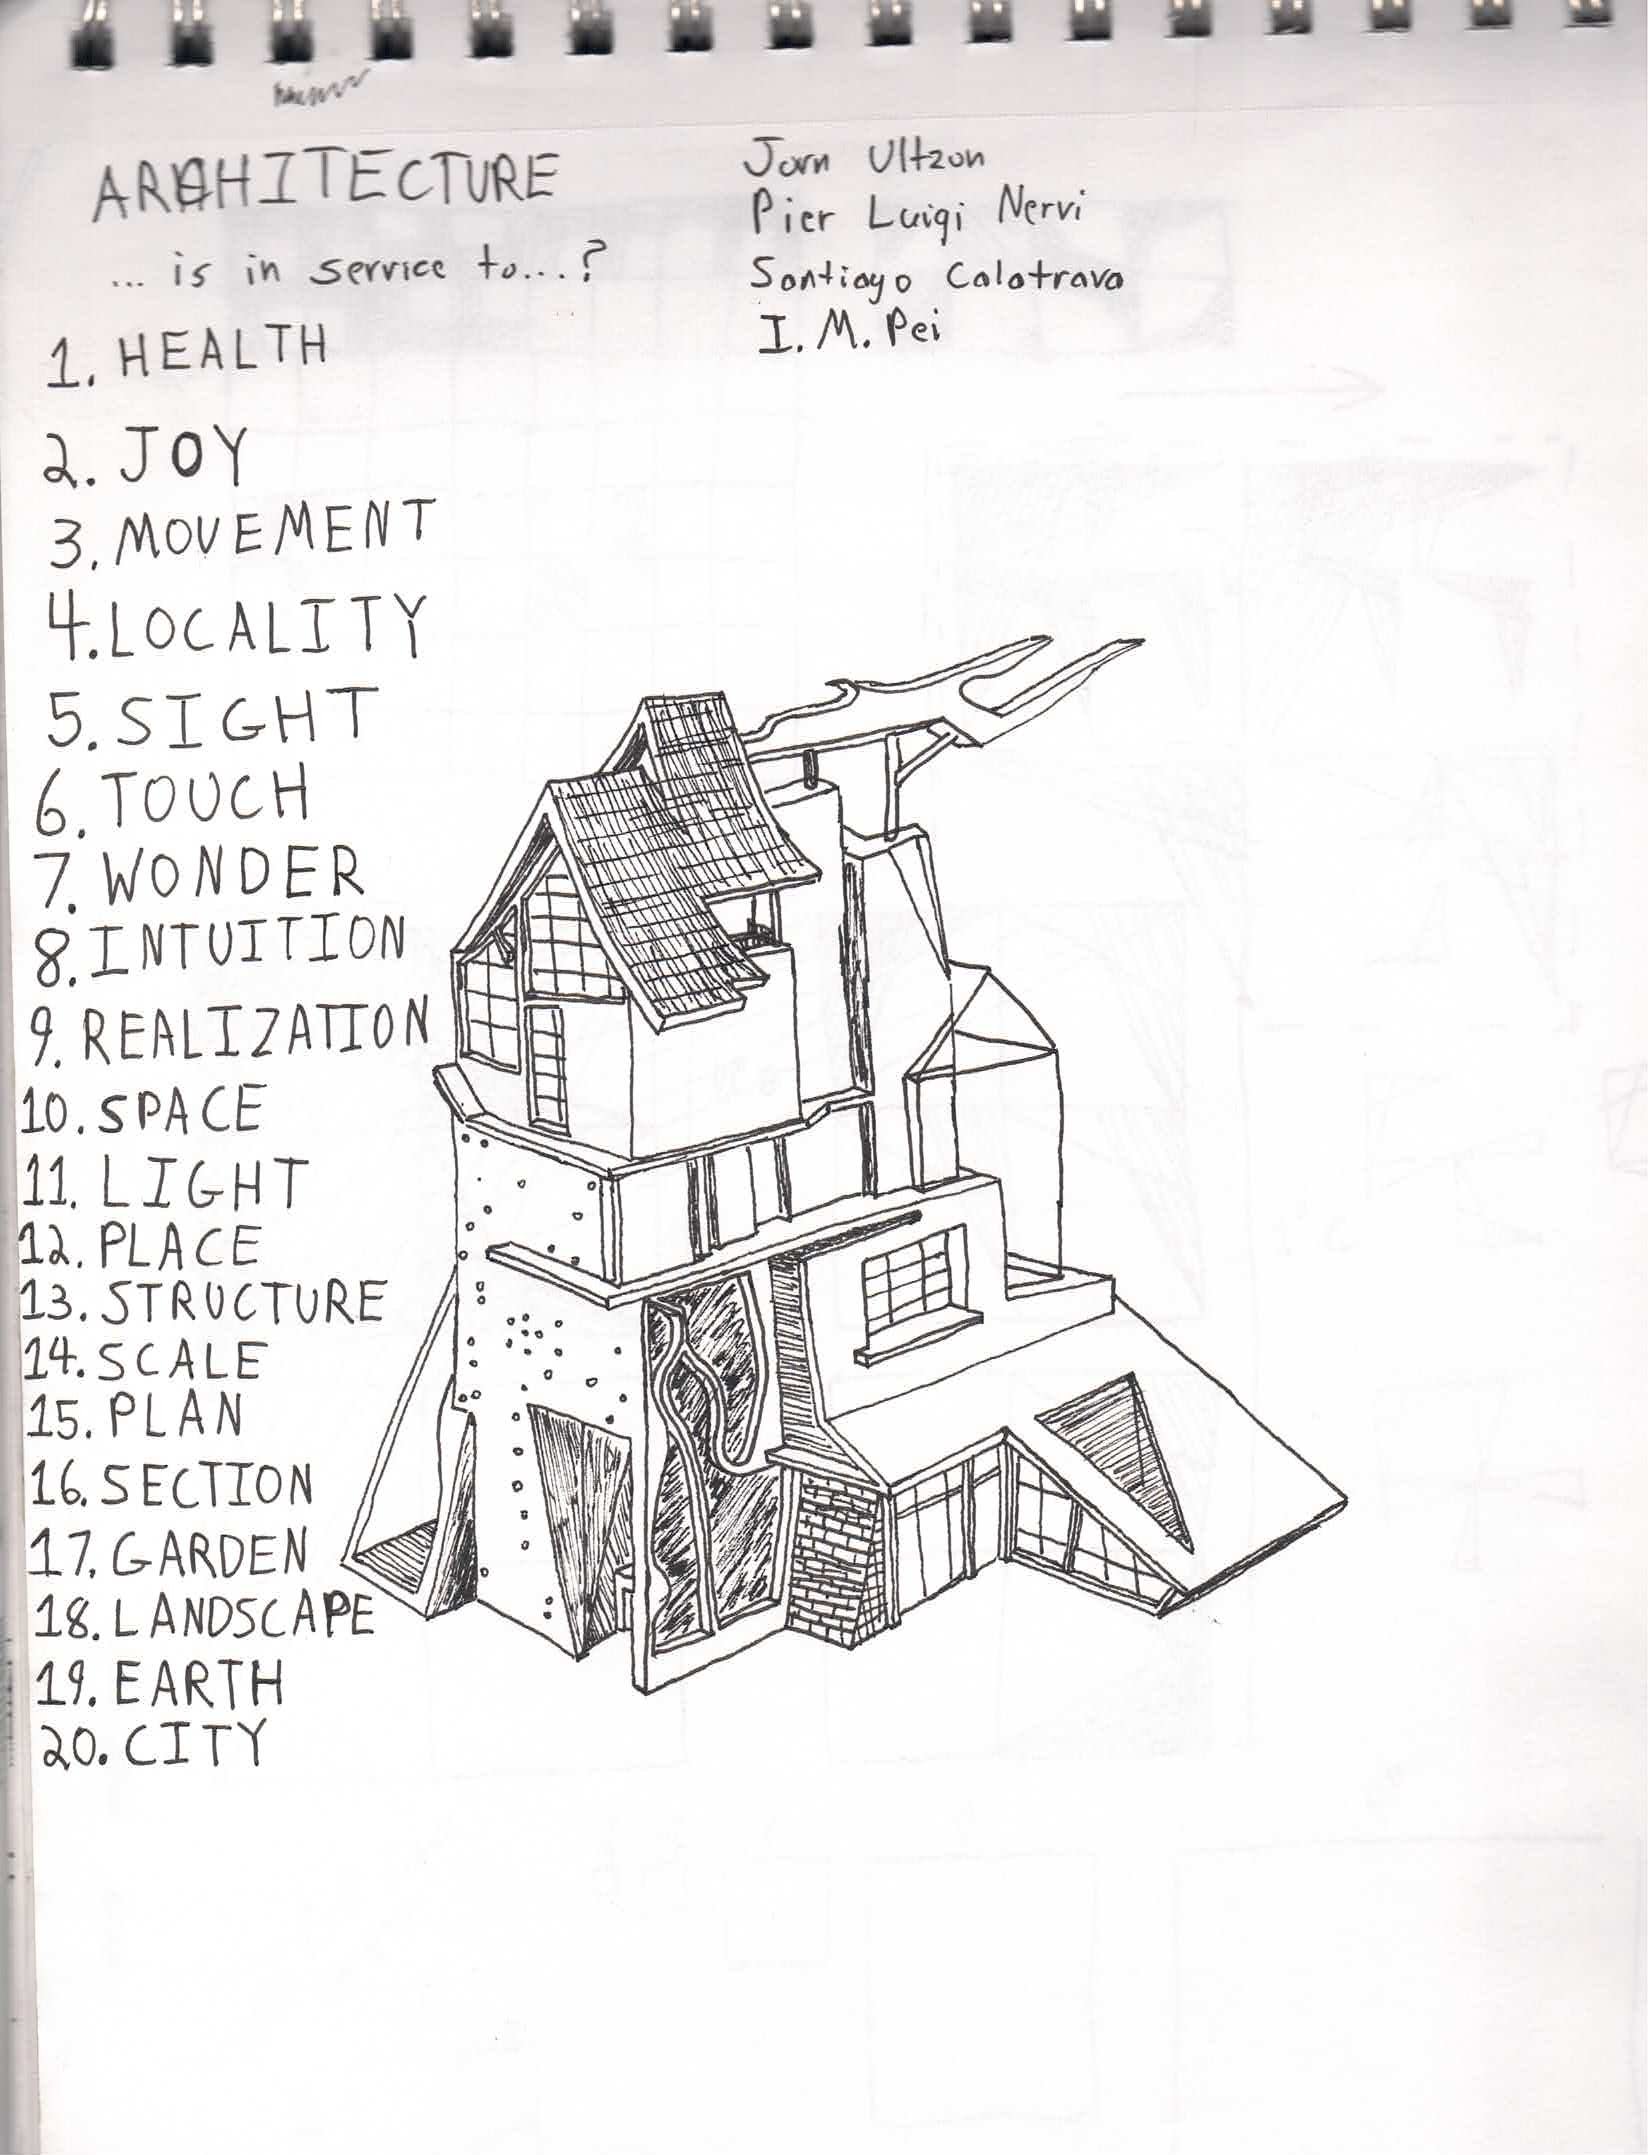 ARCHITECTURE
... is in service to...?
Jorn Ultzon
Pier Luigi Nervi
Santiago Calatrava
I. M. Pei
1. HEALTH
2. JOY
3. MOVEMENT
4. LOCALITY
5. SIGHT
6. TOUCH
7. WONDER
8. INTUITION
9. REALIZATION
10. SPACE
11. LIGHT
12. PLACE
13. STRUCTURE
14. SCALE
15. PLAN
16. SECTION
17. GARDEN
18. LANDSCAPE
19. EARTH
20. CITY